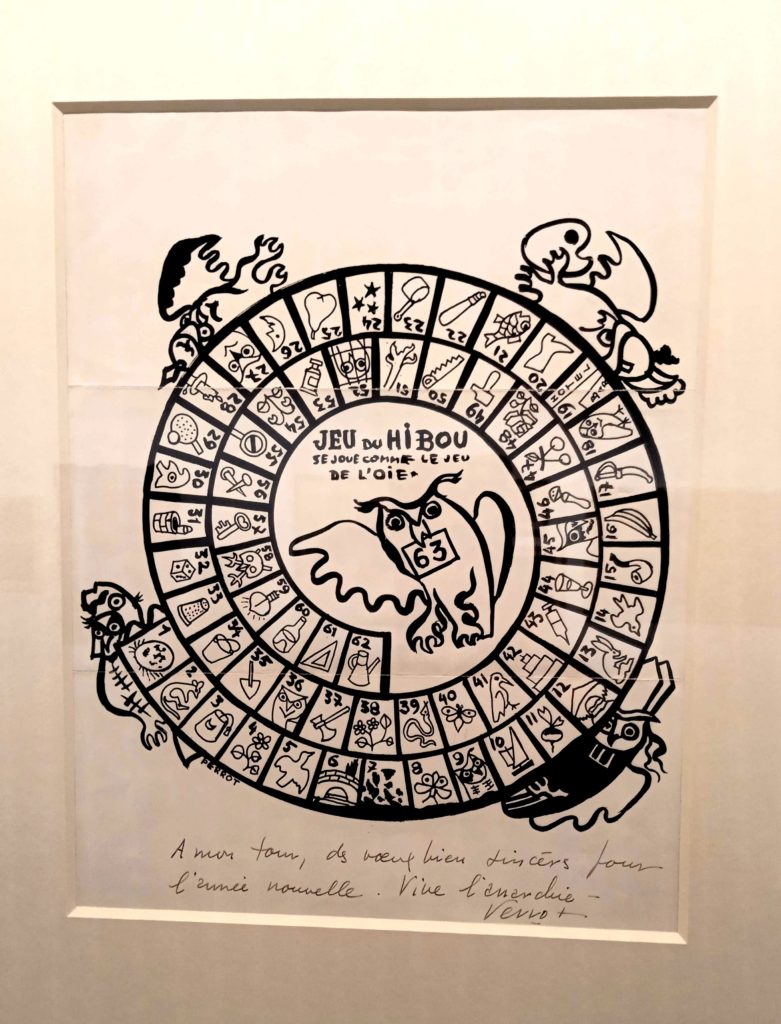 JEU DU HIBOU
SE JOUE COMME LE JEU
DE L'OIE.
63
1
2
3
4
5
6
7
8
9
10
11
12
13
14
15
16
17
18
HOTEL
19
20
21
22
23
24
25
26
27
28
29
30
31
32
33
34
35
36
37
38
39
40
41
42
43
44
45
46
47
48
49
50
51
52
53
54
55
56
57
58
59
60
61
62
PERROT
A mon tour, des vœux bien sincères pour
l'année nouvelle. Vive l'anarchie –
Perrot